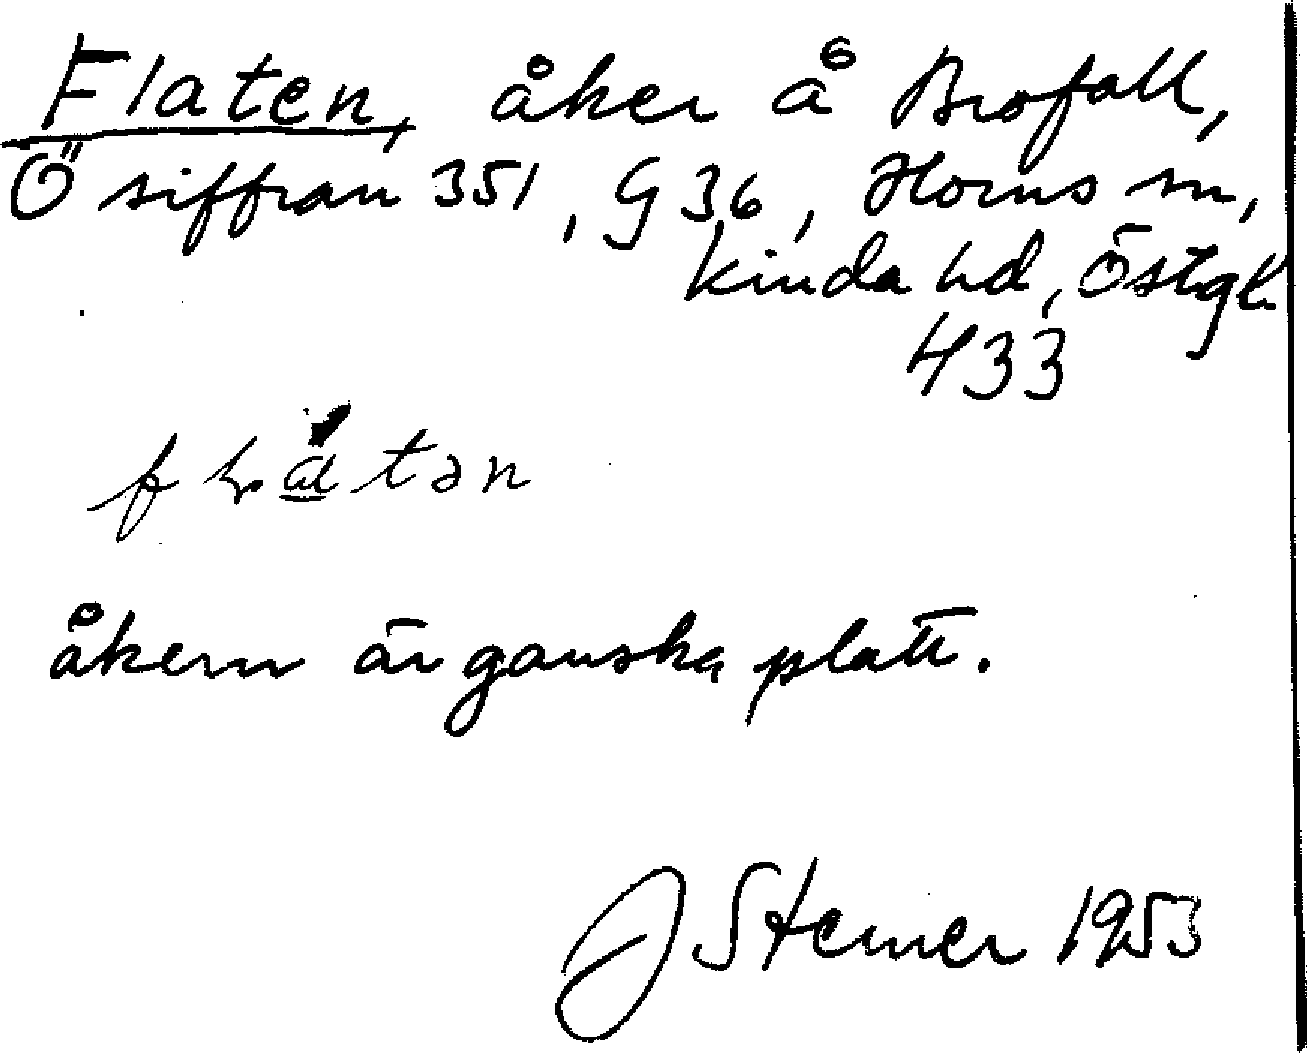 Flaten, åker å Brofall,
Ö siffran 351, G 36, Horns sn,
Kinda hd, Östgl.
433
åkern är ganska platt.
J Steiner 1953